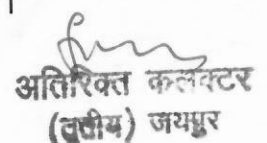 अतिरिक्त कलक्टर
(तृतीय) जयपुर